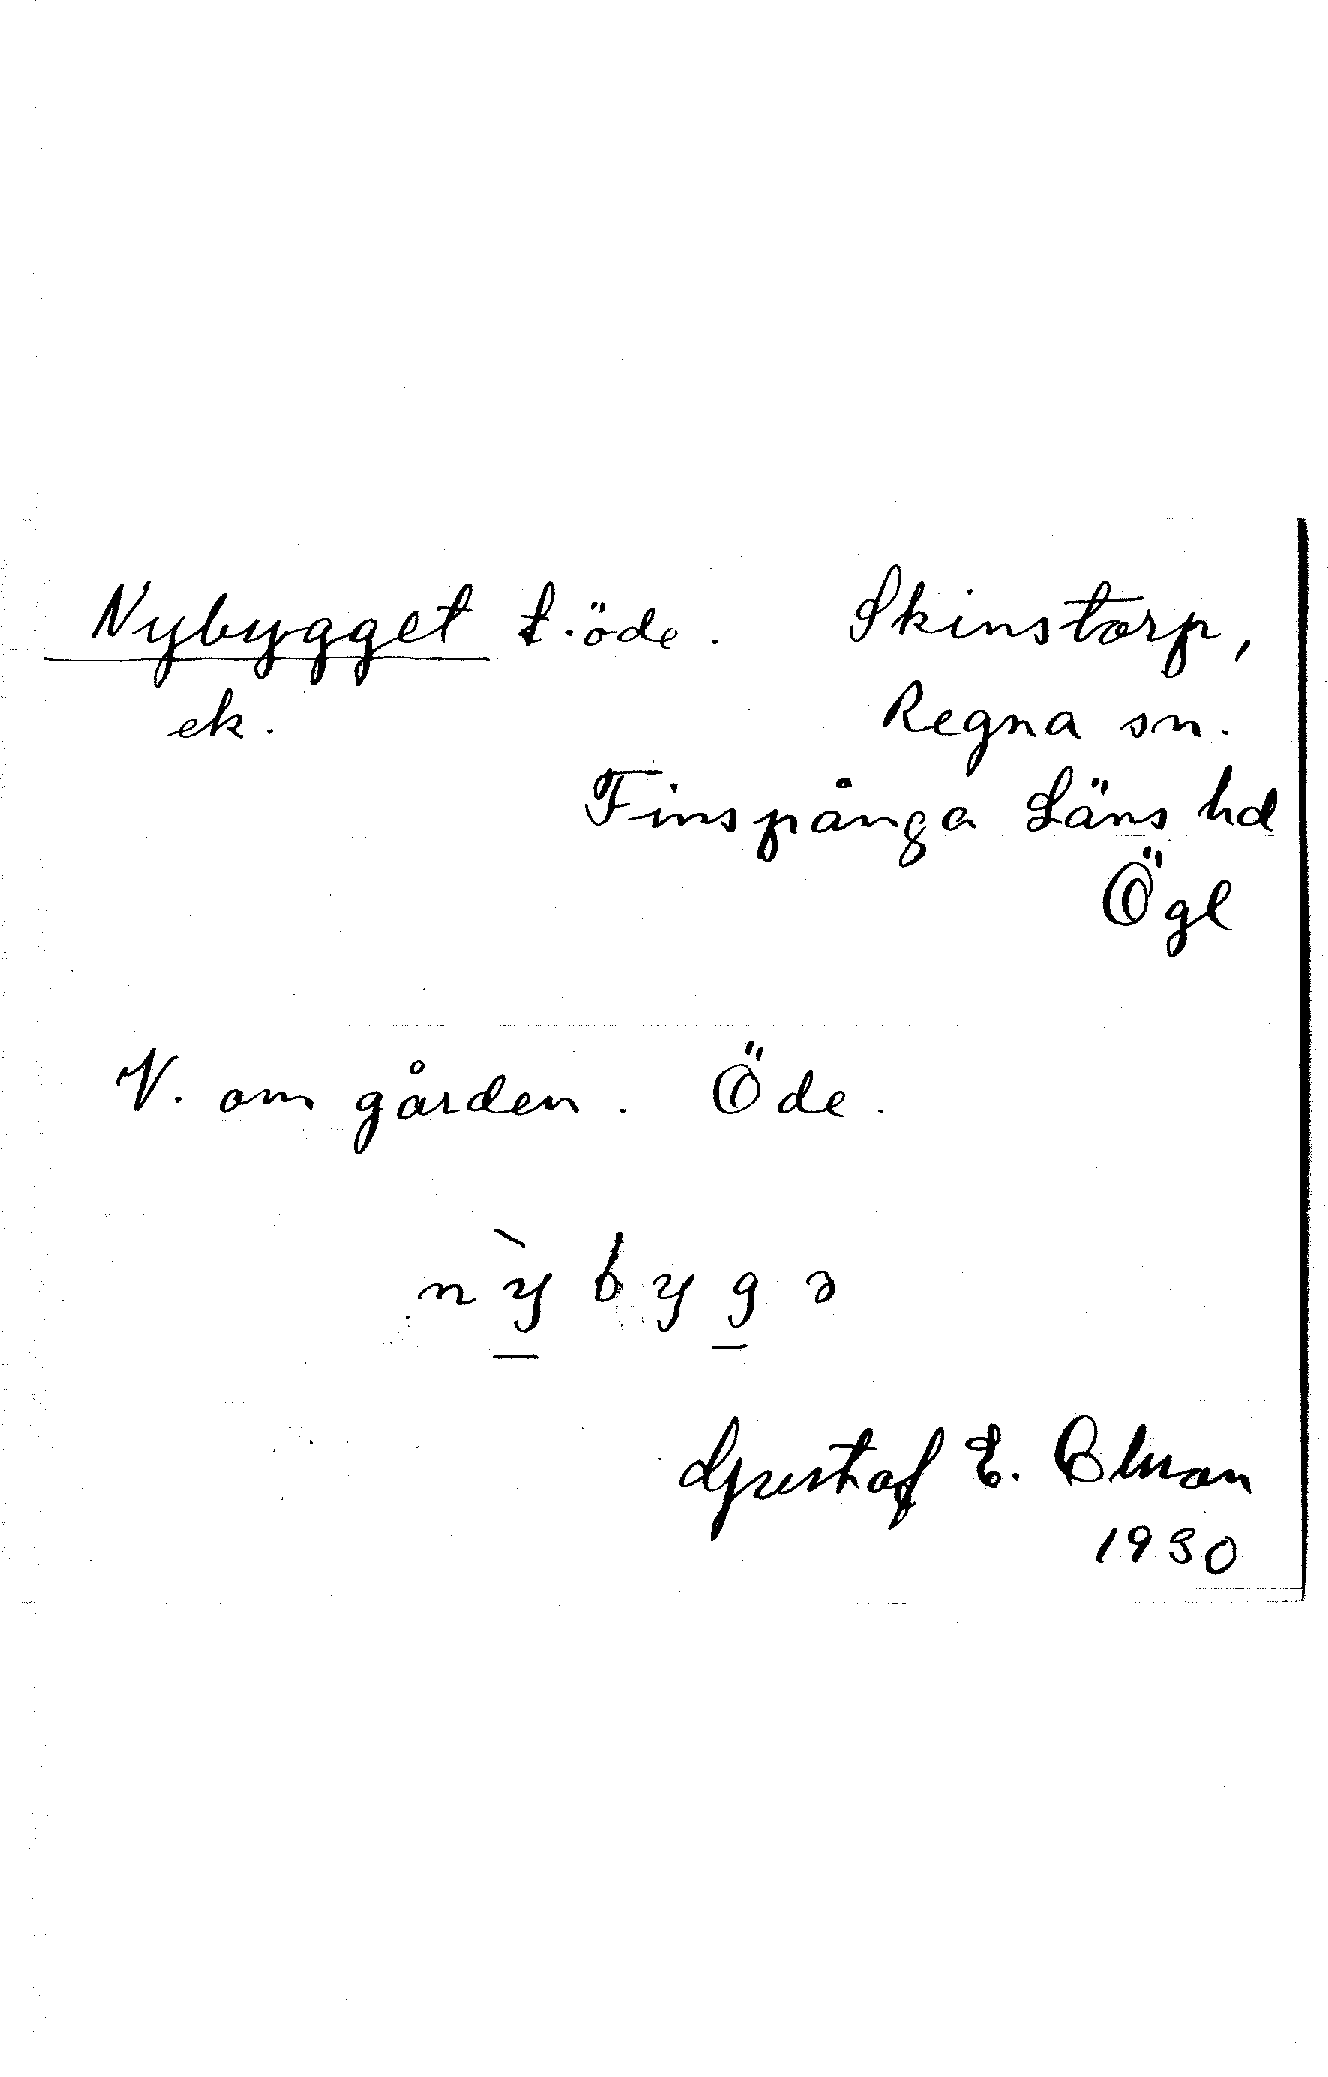 Nybygget t. öde. Skinstorp,
ek. Regna sn.
Finspånga Läns hd
Ögl
V. om gården. Öde.
nỳbygə
Gustaf E.
1930